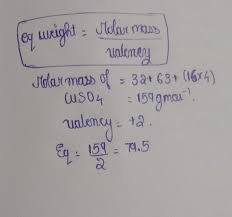 Eq weight = Molar mass
valency
Molar mass of = 32+63+(16×4)
CuSO4 = 159gmol⁻¹.
valency = +2.
Eq = 159/2 = 79.5